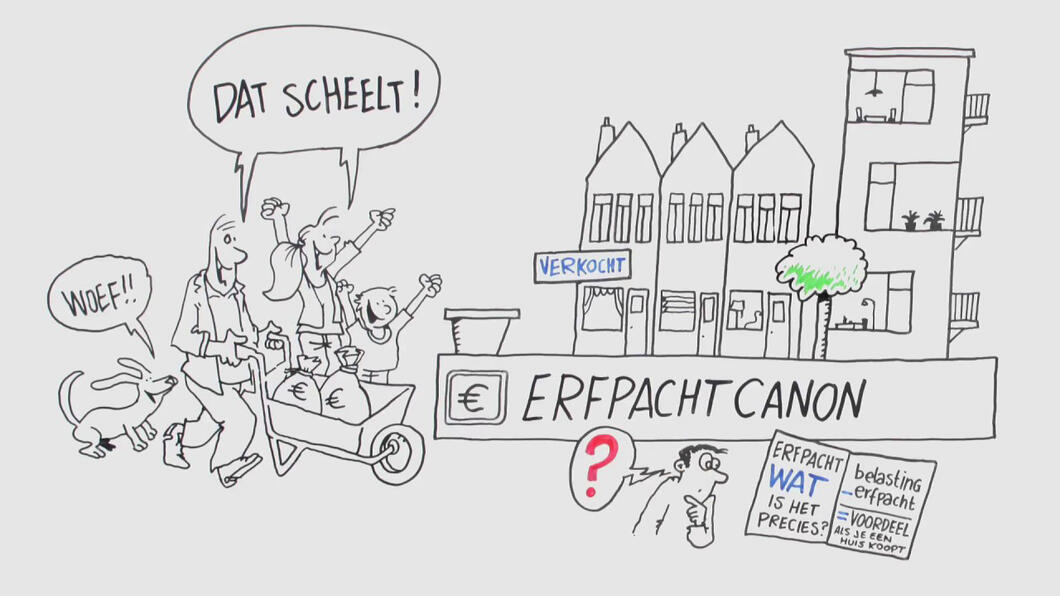 DAT SCHEELT!
WOEF!!
VERKOCHT
€ ERFPACHTCANON
€ €
?
ERFPACHT
WAT
IS HET
PRECIES?
belasting
- erfpacht
= VOORDEEL
ALS JE EEN
HUIS KOOPT